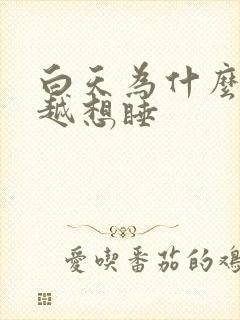 白天為什麼
越想睡
愛喫番茄的雞